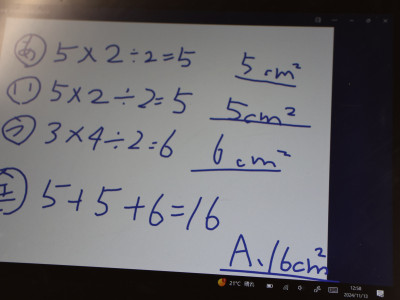 あ 5×2÷2=5 5cm²
い 5×2÷2=5 5cm²
う 3×4÷2=6 6cm²
5+5+6=16
A、16cm²
21℃ 晴れ
12:58
2024/11/13